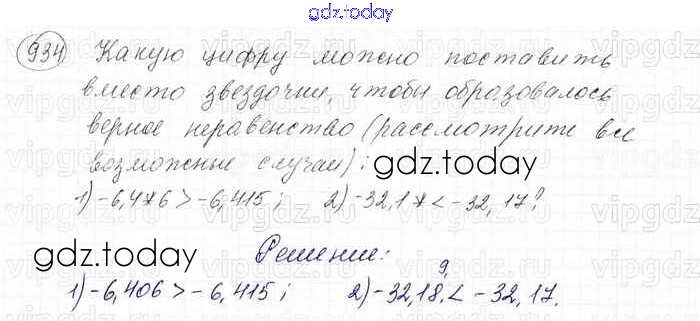 gdz.today
934 Какую цифру можно поставить
вместо звездочки, чтобы образовалось
верное неравенство (рассмотрите все
возможные случаи):
gdz.today
1) -6,4*6 > -6,415; 2) -32,1* < -32,17?
gdz.today
Решение:
9,
1) -6,406 > -6,415; 2) -32,18. < -32,17.